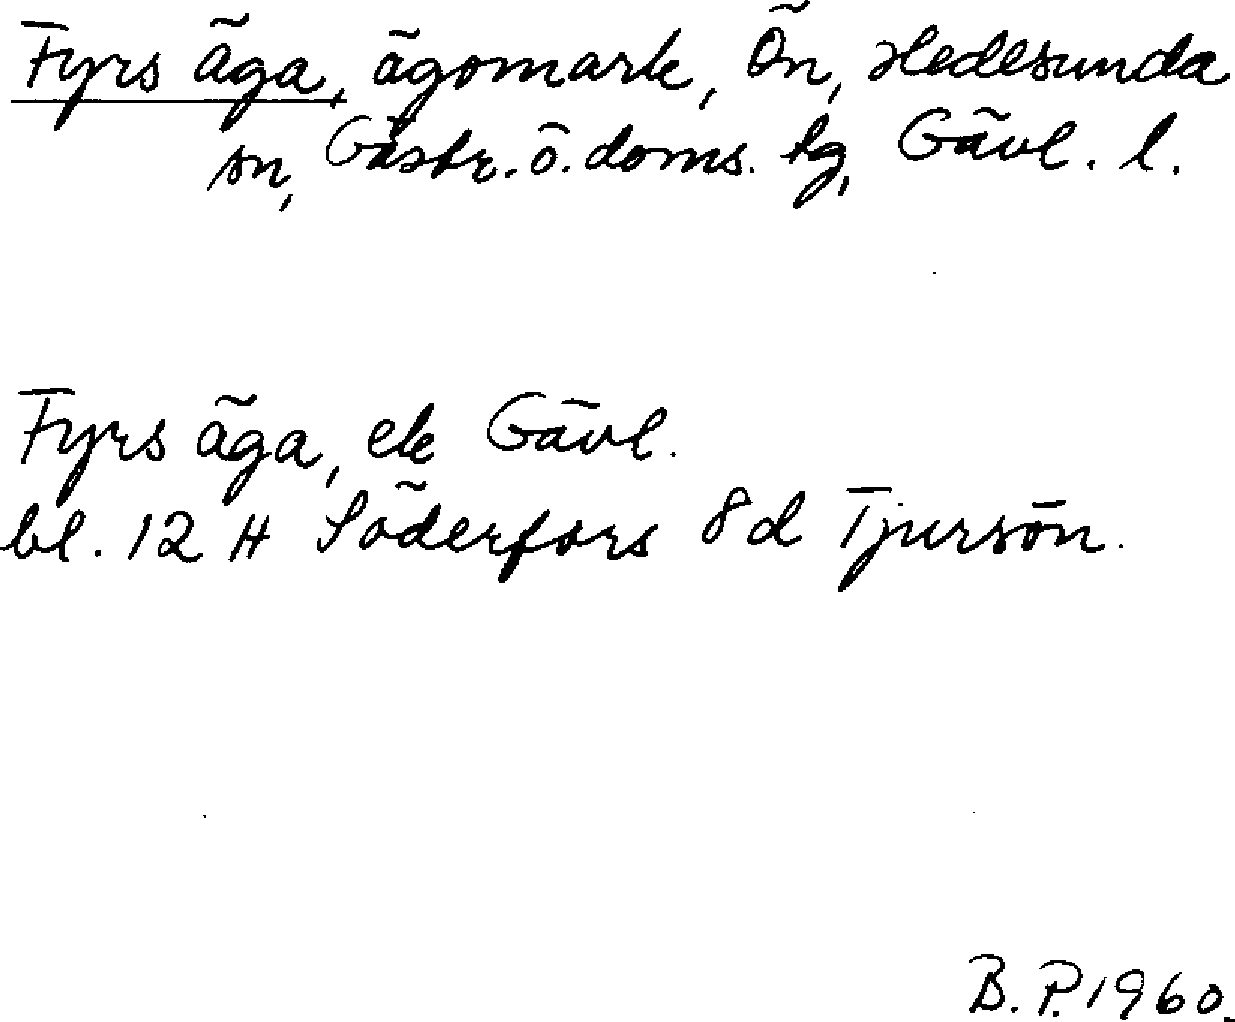 Fyrs äga, ägomark, Ön, Hedesunda
sn, Gästr. ö. doms. tg, Gävl. l.
Fyrs äga, ek Gävl.
bl. 12 H Söderfors 8d Tjursön.
B.P. 1960.